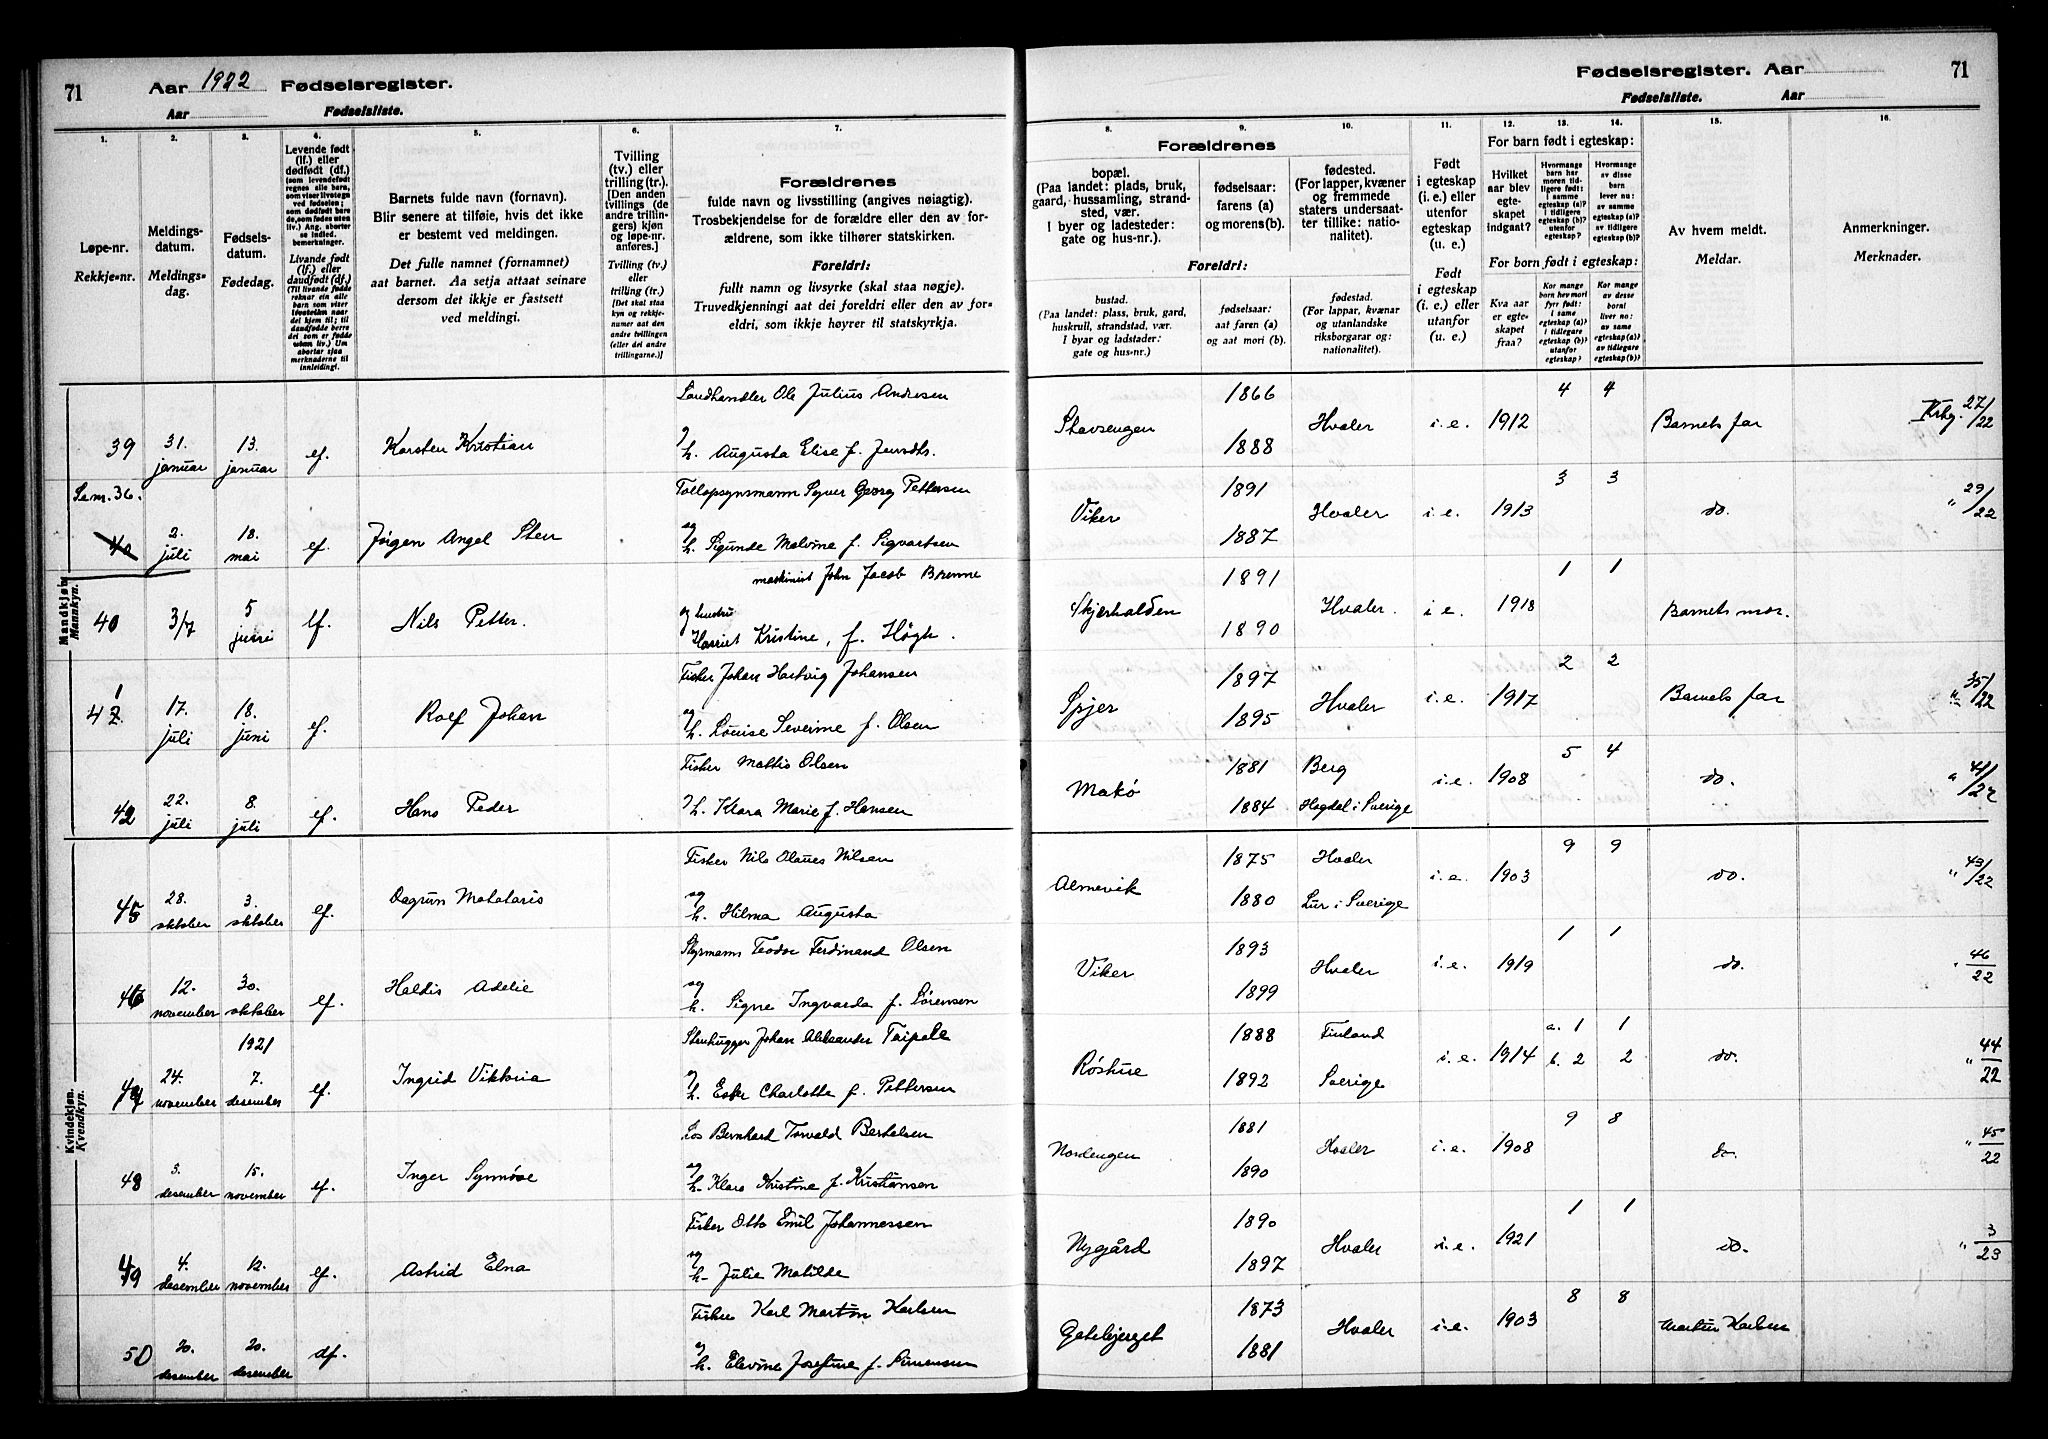 71
Aar 1922 Fødselsregister.
Aar
Fødselsliste.
Fødselsregister. Aar
71
Fødselsliste. Aar
1. 2. 3. 4. 5. 6. 7.
8. 9. 10. 11. 12. 13. 14. 15. 16.
Løpe-nr.
Rekkje-nr.
Meldings-
datum.
Meldings-
dag.
Fødsels-
datum.
Fødedag.
Levende født
(lf.) eller
dødfødt (df.)
Livande fødd
(lf.) eller
daudfødt (df.)
Barnets fulde navn (fornavn).
Blir senere at tilføie, hvis det ikke
er bestemt ved meldingen.
Det fulle namnet (fornamnet)
aat barnet. Aa setja attaat seinare
dersom det ikkje er fastsett
ved meldingi.
Tvilling
(tv.) eller
trilling (tr.).
[Den anden
tvillings (de
andre trillin-
gers) kjøn
og løpe-nr.
anføres.]
Tvilling (tv.)
eller
trilling (tr.)
[Det skal staa
kyn og rekkje-
numer aat den
andre tvillingen
(eller dei andre
trillingarne.)]
Forældrenes
fulde navn og livsstilling (angives nøiagtig).
Trosbekjendelse for de forældre eller den av for-
ældrene, som ikke tilhører statskirken.
Foreldri:
fullt namn og livsyrke (skal staa nøgje).
Truvedkjenningi aat dei foreldri eller den av for-
eldri, som ikkje høyrer til statskyrkja.
Forældrenes
bopæl.
(Paa landet: plads, bruk,
gaard, hussamling, strand-
sted, vær.
I byer og ladesteder:
gate og hus-nr.).
fødselsaar:
farens (a)
og morens (b).
fødested.
(For lapper, kvæner
og fremmede
staters undersaat-
ter tillike: natio-
nalitet).
Foreldri:
bustad.
(Paa landet: plass, bruk, gard,
huskrull, strandstad, vær.
I byar og ladstader:
gate og hus-nr.)
fødselsaar:
aat faren (a)
og aat mori (b).
fødestad.
(For lappar, kvænar
og utanlandske
riksborgarar og:
nationalitet).
Født
i egteskap
(i. e.) eller
utenfor
egteskap
(u. e.)
Født
i egteskap
(i. e.) eller
utanfor
(u. e.)
For barn født i egteskap:
Hvilket
aar blev
egte-
skapet
indgaat?
For born født i egteskap:
Kva aar
er egte-
skapet
fraa?
Av hvem meldt.
Meldar.
Anmerkninger.
Merknader.
Mandkjøn.
Mannkyn.
39 31. januar 13. januar lf. Karsten Kristian
Landhandler Ole Julius Andresen
h. Augusta Elise f.
Stavsengen 1866 1888 Hvaler i. e. 1912 4 4 Barnets far 27/22
36.
40 2. juli 18. mai lf. Angel Sten
Georg Pettersen
og
h. Sigunde Malvine f. Sigvartsen
Viker 1891 1887 Hvaler i. e. 1913 3 3 do. " 29/22
40 3/7 5 juni lf. Nils Petter.
maskinist John Jacob Brenne
og hustru
Harriet Kristine, f. Høgh.
Skjærhalden 1891 1890 Hvaler. i e. 1918 1 1 Barnets mor.
41 17. juli 18. juni lf. Rolf Johan
Fisker Johan Hartvig Johansen
og
h. Louise Severine f. Olsen
Spjær 1897 1895 Hvaler i. e. 1917 2 2 Barnets far 35/22
42 22. juli 8. juli lf. Hans Peder
Fisker Mattis Olsen
h. Klara Marie f. Hansen
Makø 1881 1884 Berg Hogdal i Sverige i. e. 1908 5 4 do. " 41/22
Kvindekjøn.
Kvendkyn.
45 28. oktober 3. oktober lf. Dagrun
Fisker Nils Olaves Nilsen
og
h. Hilma Augusta
1875 1880 Hvaler Lur i Sverige i. e. 1903 9 9 do. " 43/22
46 12. november 30. oktober lf. Haldis Adelie
Styrmann Teodor Ferdinand Olsen
og
h. Signe Ingvarda f. Sørensen
Viker 1893 1899 Hvaler i. e. 1919 1 1 do. " 46/22
47 24. november 1921 7. desember lf. Ingrid Viktoria
Stenhugger Johan Aleksander Taipale
og
h. Ester Charlotte f. Pettersen
1888 1892 Finland Sverige i. e. 1914 a. 1 1 b. 2 2 do. " 44/22
48 3. desember 15. november lf. Inger Synnøve
Los Bernhard Torvald Bertelsen
og
h. Klara Kristine f. Kristiansen
Nordengen 1881 1890 Hvaler i. e. 1908 9 8 do. " 45/22
49 4. desember 12. november lf. Astrid Elna
Fisker Otto Emil Johannessen
og
h. Julie Matilde
Nygård 1890 1897 Hvaler i. e. 1921 1 1 do. " 3/23
50 20. desember 20. desember df.
Fisker Karl Martin Karlsen
og
h. Elevine Josefine f. Simensen
1873 1881 Hvaler i. e. 1903 8 8 Martin Karlsen